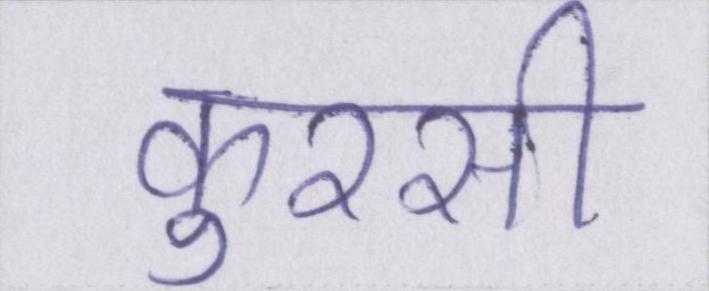 कुरसी